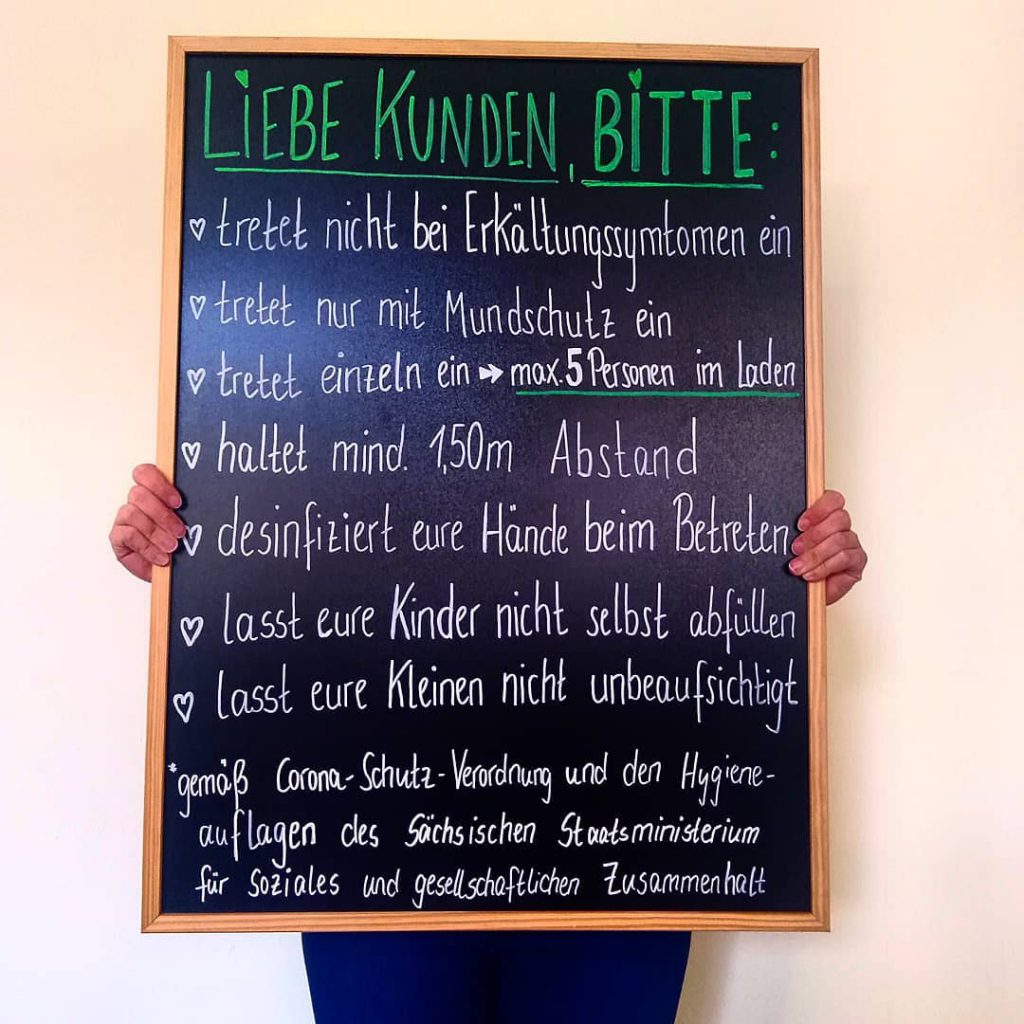 LiEBE KUNDEN, BiTTE:
♡ tretet nicht bei Erkältungssymtomen ein
♡ tretet nur mit Mundschutz ein
♡ tretet einzeln ein ➔ max. 5 Personen im Laden
♡ haltet mind. 1,50m Abstand
♡ desinfiziert eure Hände beim Betreten
♡ lasst eure Kinder nicht selbst abfüllen
♡ lasst eure Kleinen nicht unbeaufsichtigt
*gemäß Corona-Schutz-Verordnung und den Hygiene-
auflagen des Sächsischen Staatsministerium
für Soziales und gesellschaftlichen Zusammenhalt